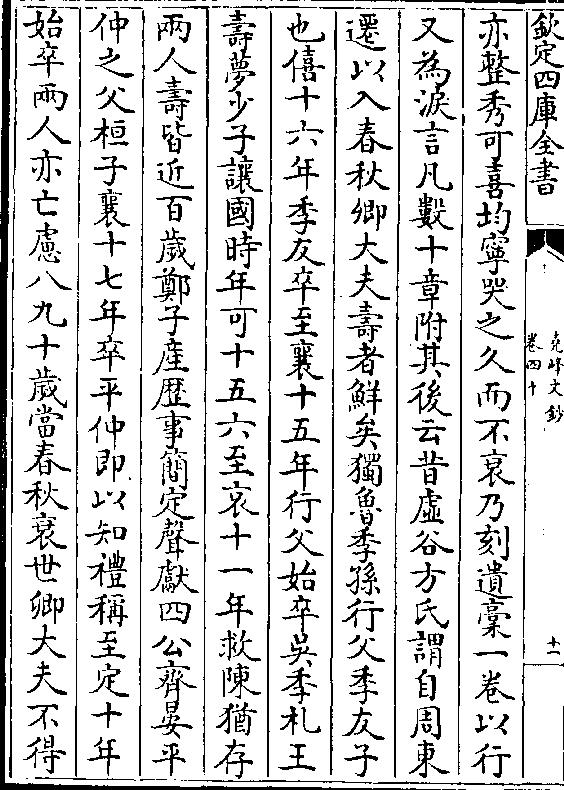 欽定四庫全書
堯峰文鈔
卷四十
十一
亦整秀可喜均寧哭之久而不哀乃刻遺稾一卷以行
又為淚言凡數十章附其後云昔虛谷方氏謂自周東
遷以入春秋卿大夫壽者鮮矣獨魯季孫行父季友子
也僖十六年季友卒至襄十五年行父始卒吳季札王
壽夢少子讓國時年可十五六至哀十一年救陳猶存
兩人壽皆近百歲鄭子產歴事簡定聲獻四公齊晏平
仲之父桓子襄十七年卒平仲即以知禮稱至定十年
始卒兩人亦亡慮八九十歲當春秋衰世卿大夫不得